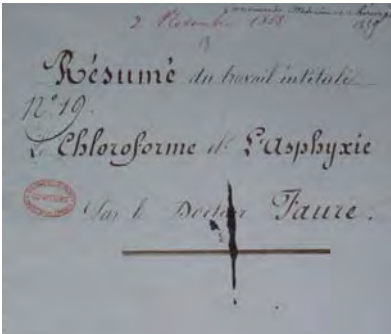 2 1858
1859
Résumé du travail intitulé
N° 19.
Le Chloroforme et L'Asphyxie
Par le Docteur Faure.